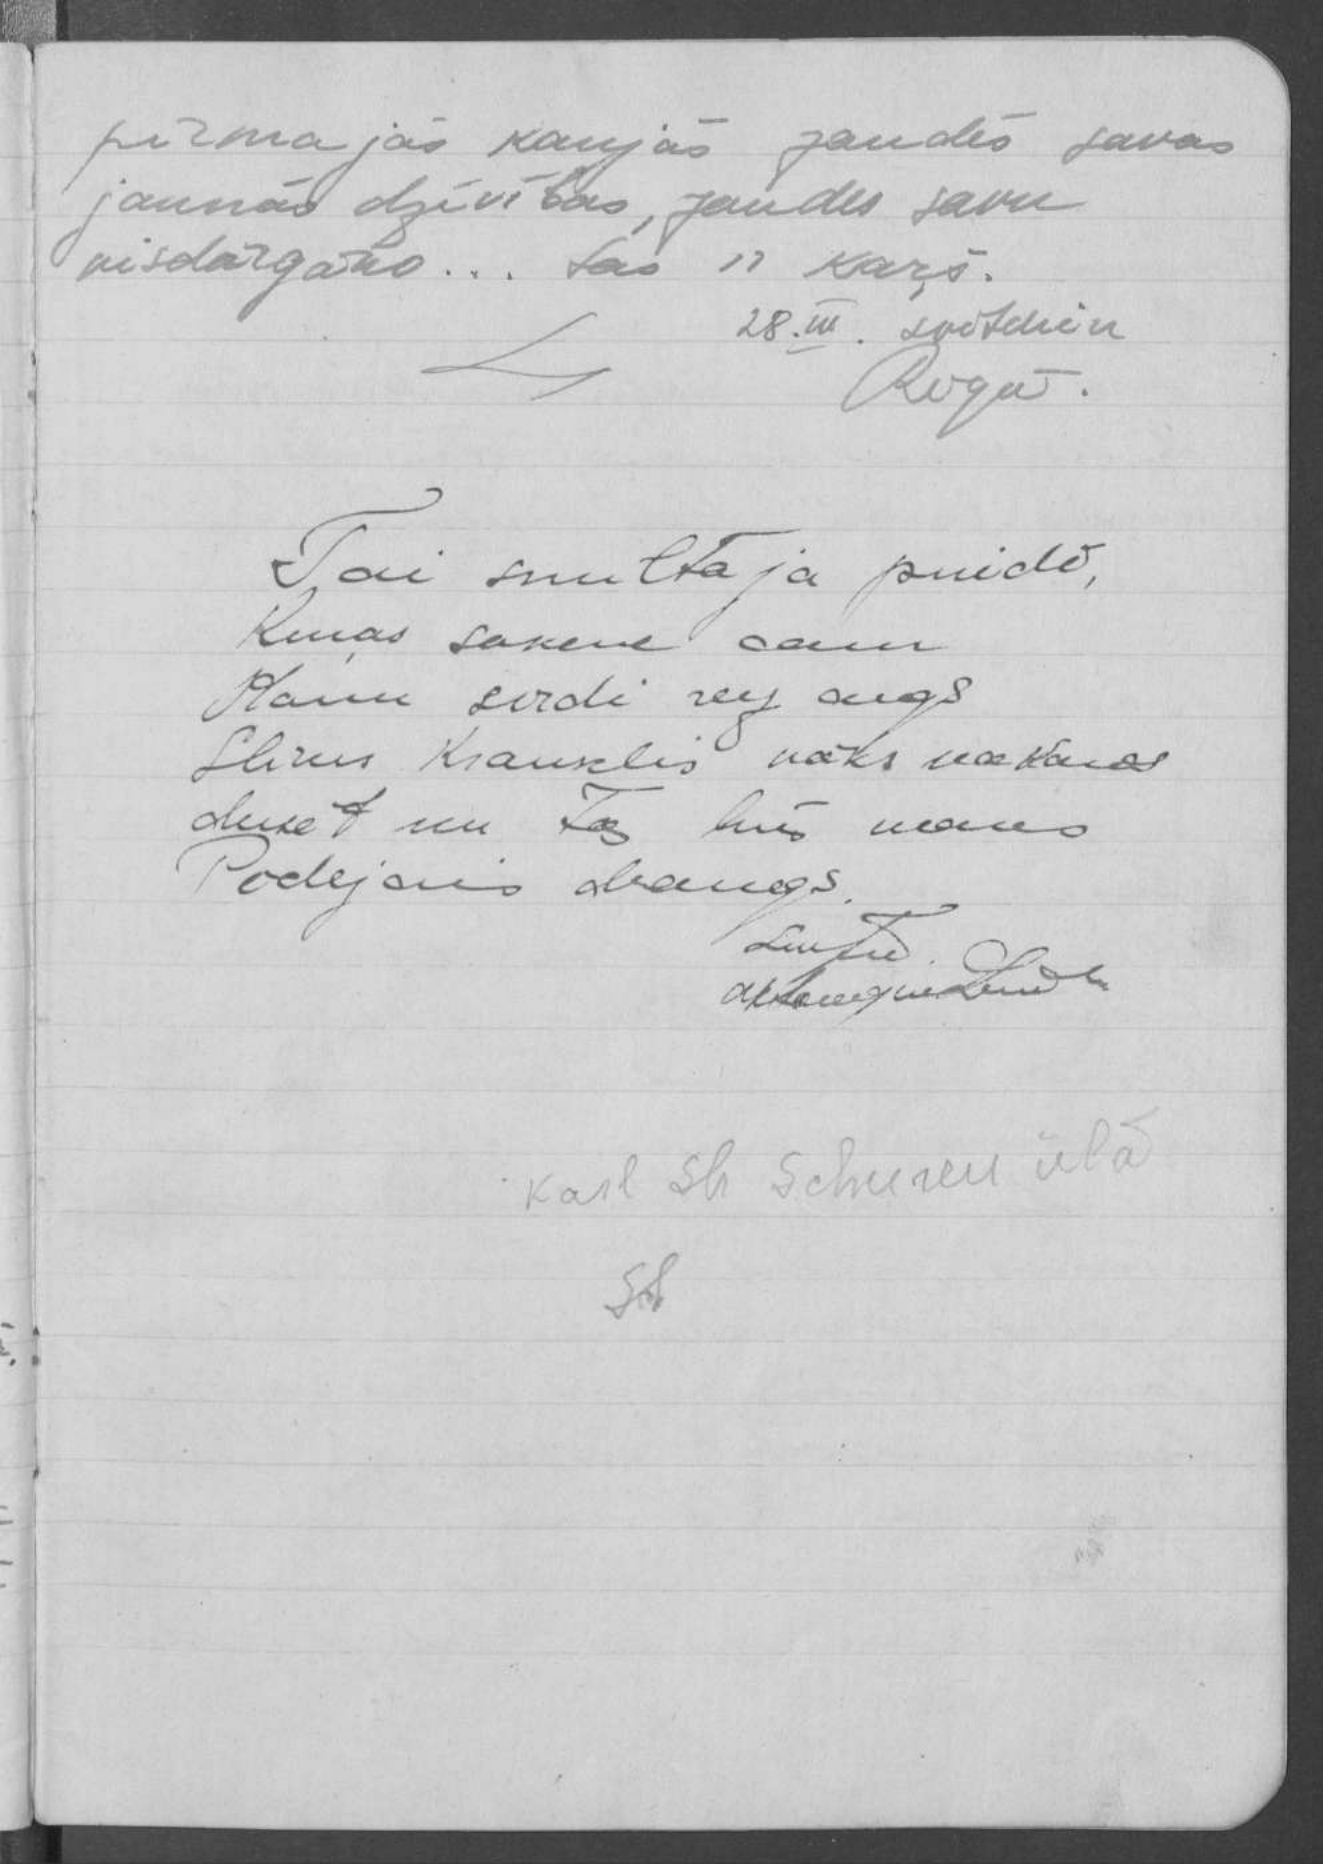 pirmajās kaujās zaudēs savas
jaunās dzīvības, zaudēs savu
visdārgāko... tas ir karš.
28.III. svētdien
Rīgā.
Tai smiltājā puidē,
Kuŗas sakene caur
Manu sirdi reiz augs
Širms Krauklis nāks vakaros
dusēt un Tas būs mans
Pēdējais draugs.
Karl Sh Schuren ielā
Sh